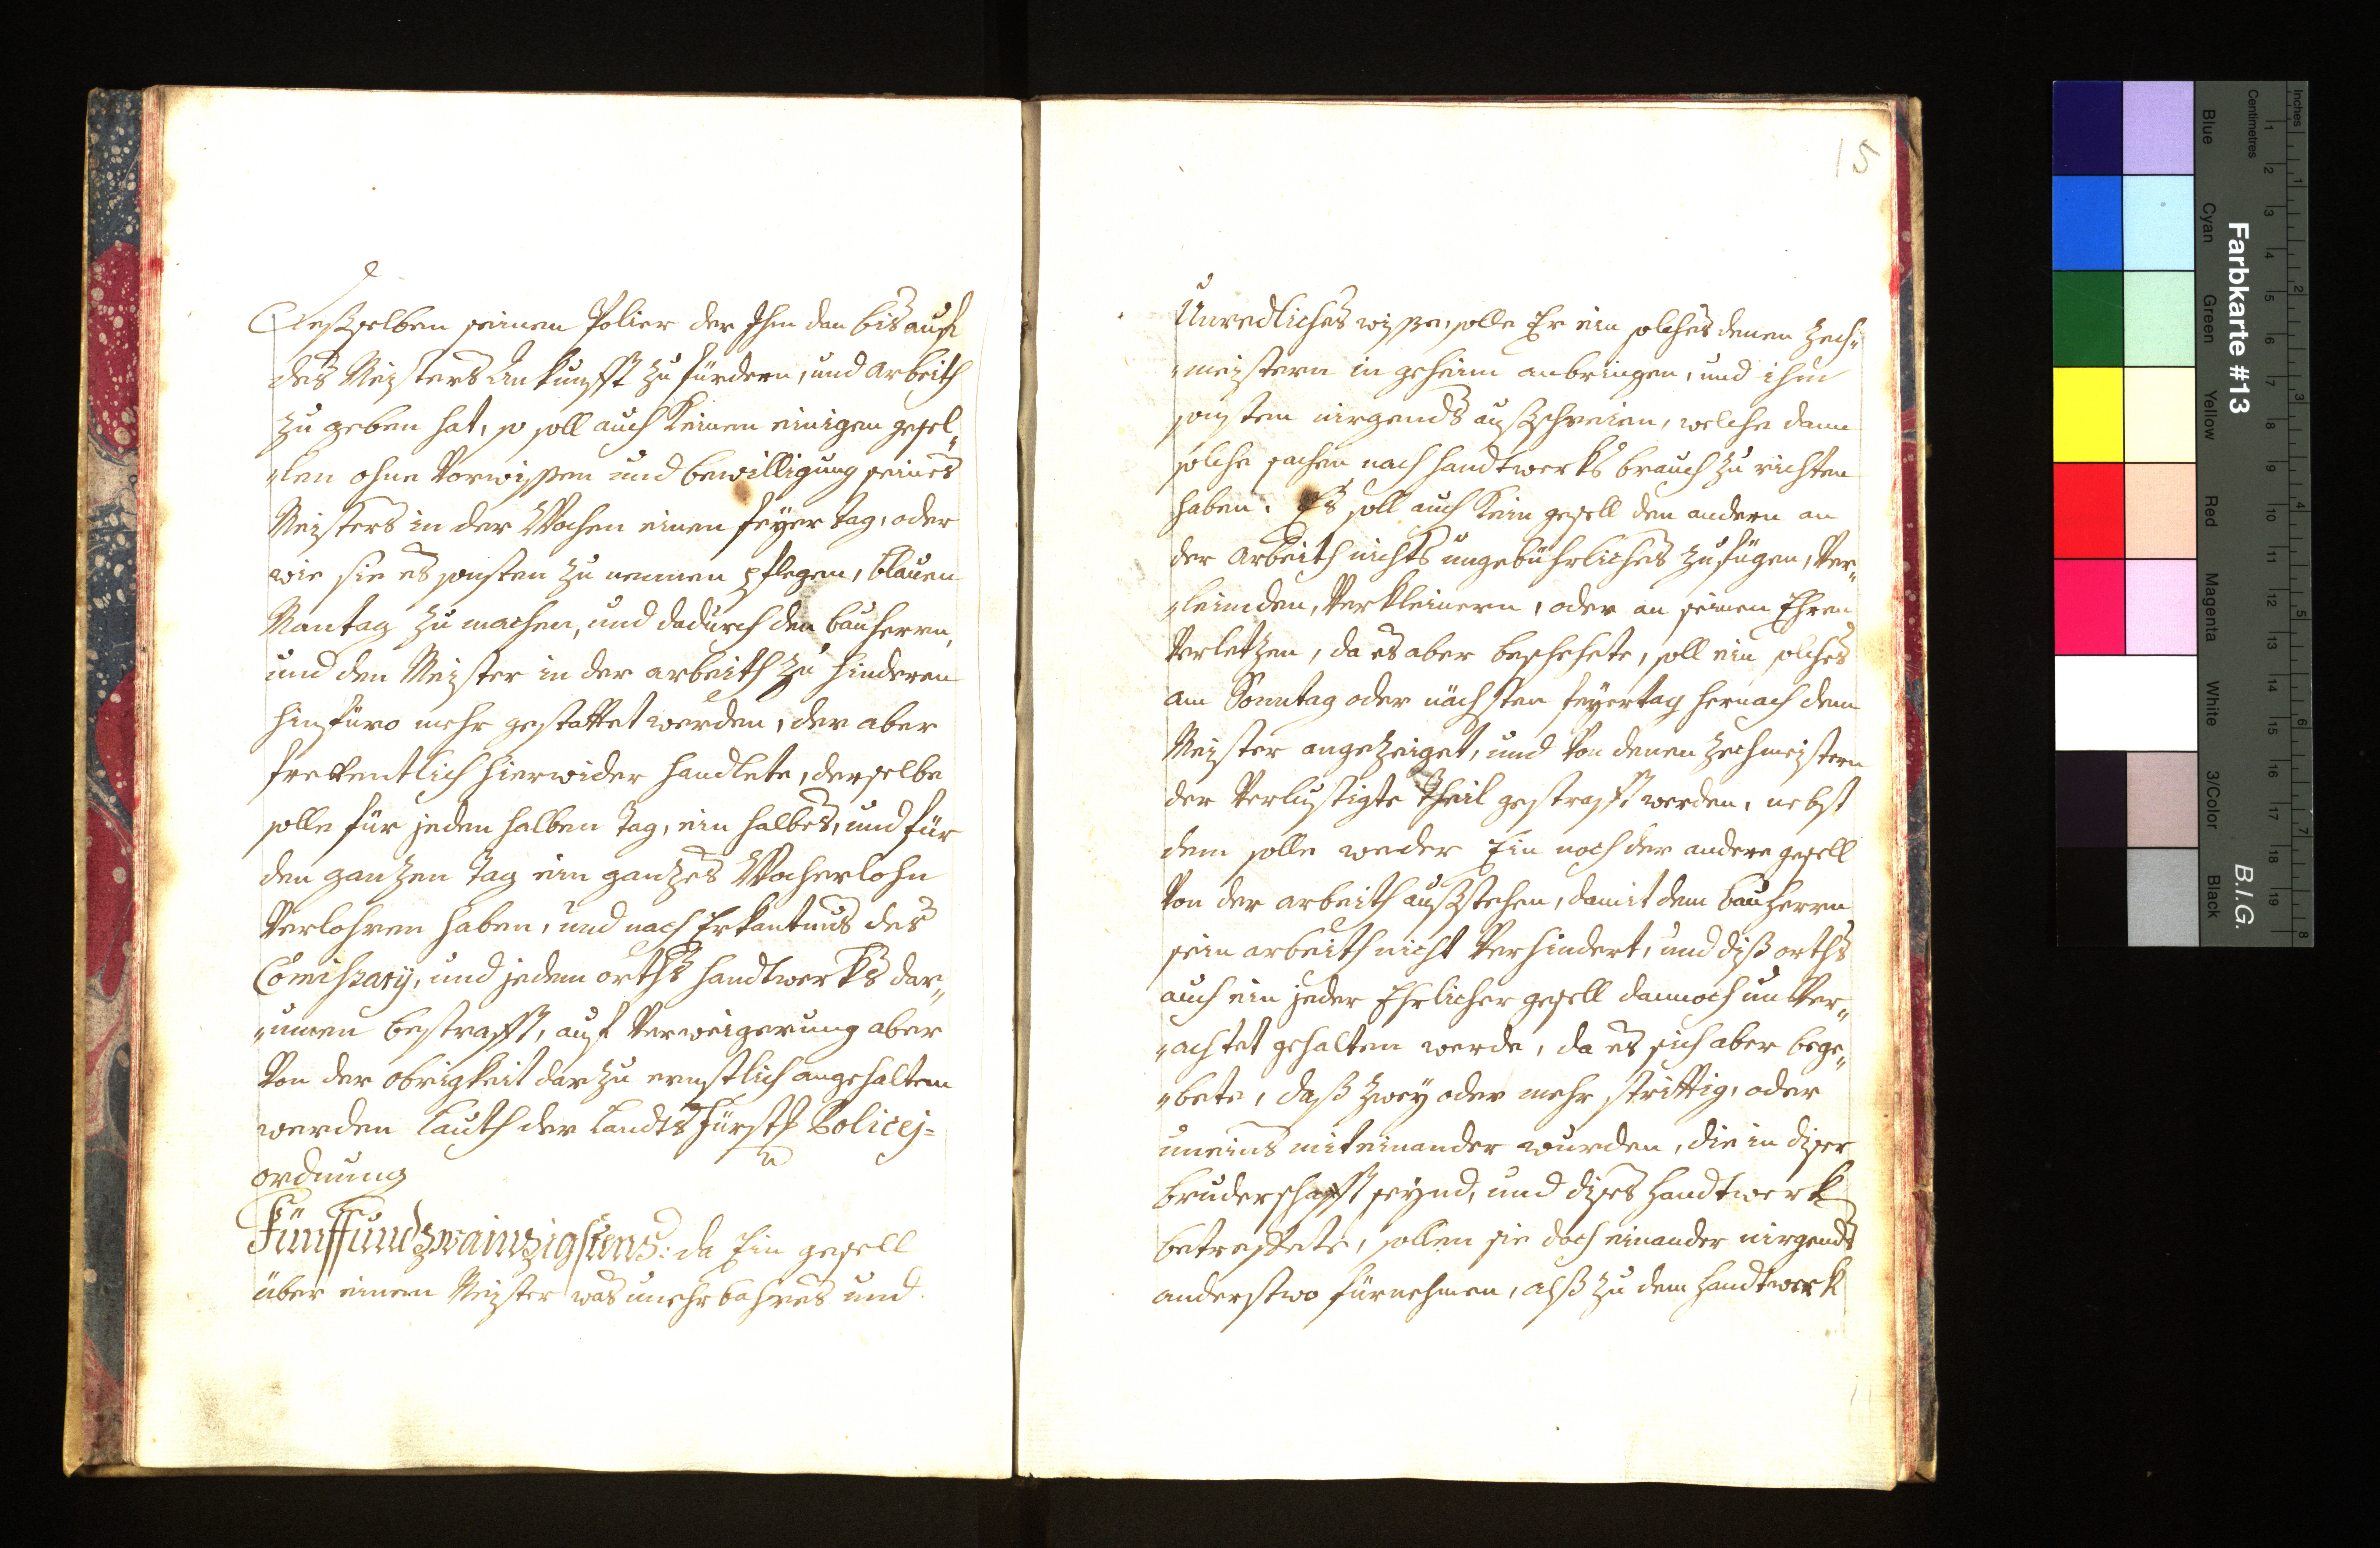 Deßselben seinen Polier der Ihm dan bis auf
des Meisters Ankunfft zu fürdern, und arbeith
zu geben hat, so soll auch keinen einigen gesel„
„len ohne Vorwissen und bewilligung seines
Meisters in der Wochen einen feyer tag, oder
wie sie es sonsten zu nennen pflegen, blauen
Montag zu machen, und dadurch den bauherrn,
und den Meister in der arbeith zu hinderen
hinfüro mehr gestattet werden, der aber
freffentlich hierwider handlete, derselbe
solle für jeden halben Tag, ein halbes, und für
den gantzen Tag ein gantzes Wocherlohn
Verlohren haben, und nach Erkantnus des
Comissarÿ, und jedem orths handtwerkhs dar„
„umen bestrafft, auf Verweigerung aber
Von der obrigkeit darzu ernstlich angehalten
werden lauth der landtsfürstl Policej=
ordnung
Fünffundzwainzigstens: da Ein gesell
über einem Meister was unehrbahres und
15
Unredliches wisse, solle Er ein solches denen Zech„
„meistern in geheim anbringen, und ihm
sonsten nirgends außschreien, welche dann
solche sachen nach handtwerkhs brauch zu richten
haben. Es soll auch kein gesell den andern an
der arbeith nichts ungebührliches zufügen, Ver„
„leimden, Verkleinern, oder an seinen Ehren
Verletzen, da es aber beschehete, soll ein solches
am Sonntag oder nächsten feyertag hernach dem
Meister angezeiget, und Von denen Zechmeistern
der Verlustigte Theil gestrafft werden, nebst
dem solle weder Ein noch der andere gesell
Von der arbeith außstehen, damit dem bauherrn
sein arbeith nicht Verhindert, und diß orths
auch ein jeder Ehrlicher gesell dannoch un Ver„
„achtet gehalten werde, da es sich aber bege„
„bete, daß zwey oder mehr strittig, oder
uneins miteinander wurden, die in diser
bruderschafft seynd, und dises handtwerk
betreffete, sollen sie doch einander nirgends
anderstwo fürnehmen, alß zu dem handtwerk
Farbkarte #13
B.I.G.
Inches
Centimetres
Blue Cyan Green Yellow Red Magenta White 3/Color Black
1 2 3 4 5 6 7 8 9 10 11 12 13 14 15 16 17 18 19
1 2 3 4 5 6 7 8